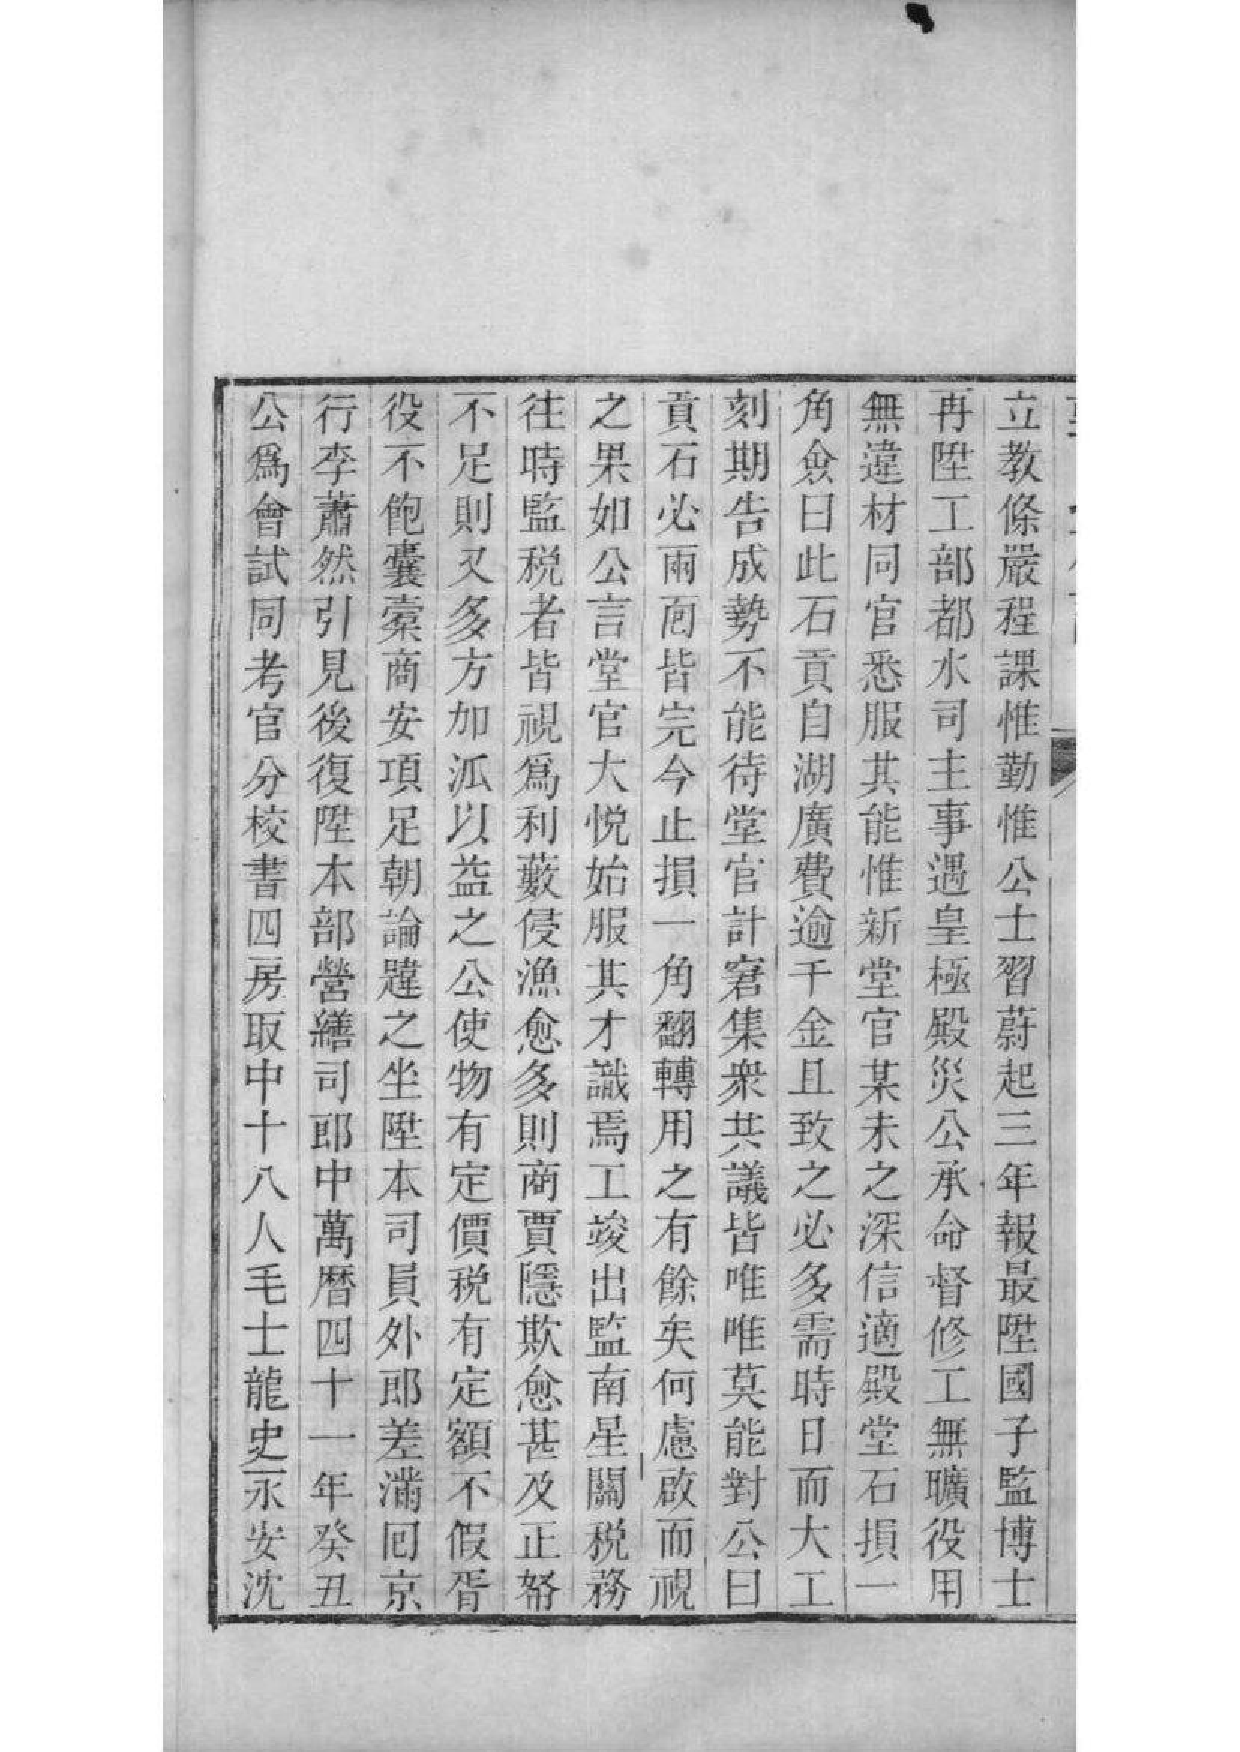 立教條嚴程課惟勤惟公士習蔚起三年報最陞國子監博士
再陞工部都水司主事遇皇極殿災公承命督修工無曠役用
無違材同官悉服其能惟新堂官某未之深信適殿堂石損一
角僉曰此石貢自湖廣費逾千金且致之必多需時日而大工
刻期告成勢不能待堂官計窘集衆共議皆唯唯莫能對公曰
貢石必兩面皆完今止損一角翻轉用之有餘矣何慮啟而視
之果如公言堂官大悅始服其才識焉工竣出監南星關税務
往時監税者皆視爲利藪侵漁愈多則商賈隱欺愈甚及正帑
不足則又多方加派以益之公使物有定價税有定額不假胥
役不飽囊橐商安項足朝論韙之坐陞本司員外郎差滿囘京
行李蕭然引見後復陞本部營繕司郎中萬曆四十一年癸丑
公爲會試同考官分校書四房取中十八人毛士龍史永安沈